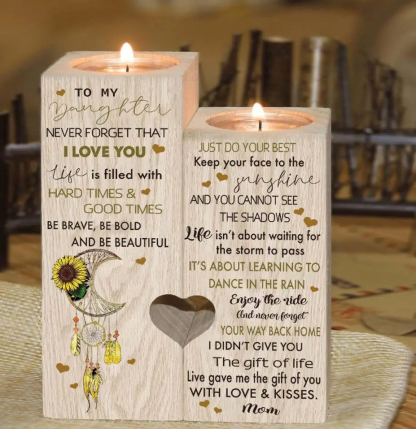 TO MY
Daughter
NEVER FORGET THAT
I LOVE YOU
Life is filled with
HARD TIMES &
GOOD TIMES
BE BRAVE, BE BOLD
AND BE BEAUTIFUL
JUST DO YOUR BEST
Keep your face to the
sunshine
AND YOU CANNOT SEE
THE SHADOWS
Life isn't about waiting for
the storm to pass
IT'S ABOUT LEARNING TO
DANCE IN THE RAIN
Enjoy the ride
And never forget
YOUR WAY BACK HOME
I DIDN'T GIVE YOU
The gift of life
Live gave me the gift of you
WITH LOVE & KISSES.
Mom